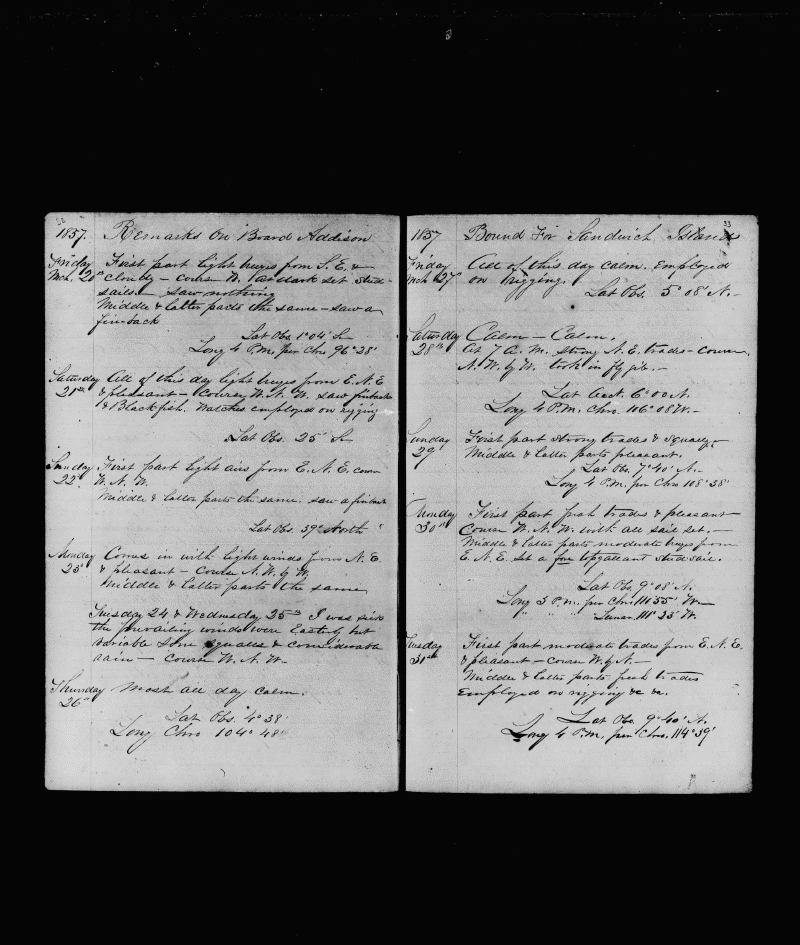 32
1857. Remarks On Board Addison
Friday First part light breezes from S. E. &
Mch. 20th cloudy - course N. W. set stud-
sails. - Saw nothing
Middle & latter parts the same - saw a
fin-back
Lat Obs. 1° 04' S.
Long 4 P.M. per Chro. 96° 28'
Saturday All of this day light breezes from E. N. E
21st & pleasant - Course W. N. W. saw finbacks
& Blackfish. Watches employed on rigging
Lat Obs. 25' S.
Sunday First part light airs from E. N. E. course
22d W. N. W.
Middle & latter parts the same. saw a finback
Lat Obs. 39' North
Monday Comes in with light winds from N. E.
23 & pleasant - course N. W. by W.
Middle & latter parts the same
Tuesday 24 & Wednesday 25th I was sick
the prevailing winds were Easterly but
variable some squalls & considerable
rain - course W. N. W.
Thursday Most all day calm.
26th
Lat Obs. 4° 38'
Long Chro 104° 48'
33
1857 Bound For Sandwich Islands
Friday All of this day calm. Employed
Mch 27th on rigging.
Lat Obs. 5° 08' N.-
Saturday Calm - Calm.
28th At 7 A. M. strong N. E. trades - course
N. W. by W. took in fly jib. -
Lat Acct. 6° 00 N.
Long 4 P.M. Chro. 106° 08' W. -
Sunday First part strong trades & squally. -
29 Middle & latter parts pleasant.
Lat Obs. 7° 40' N. -
Long 4 P.M. per Chro 108° 38'
Monday First part fresh trades & pleasant
30th Course W. N. W. with all sail set. -
Middle & latter parts moderate breezes from
E. N. E. Set a fore topgallant stud sail.
Lat Obs 9° 08' N.
Long 3 P.m. per Chro. 111° 55' W -
" " Lunar. 111° 33' W.
Tuesday First part moderate trades from E. N. E.
31st & pleasant - course W. by N. -
Middle & latter parts fresh trades
Employed on rigging &c &c.
Lat Obs. 9° 40' N.
Long 4 P.M. per Chro. 114° 39'